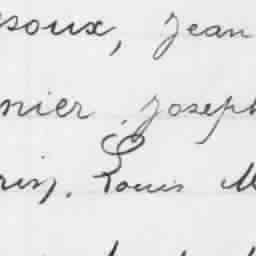 soux, Jean
nier. Joseph
ris, Louis M